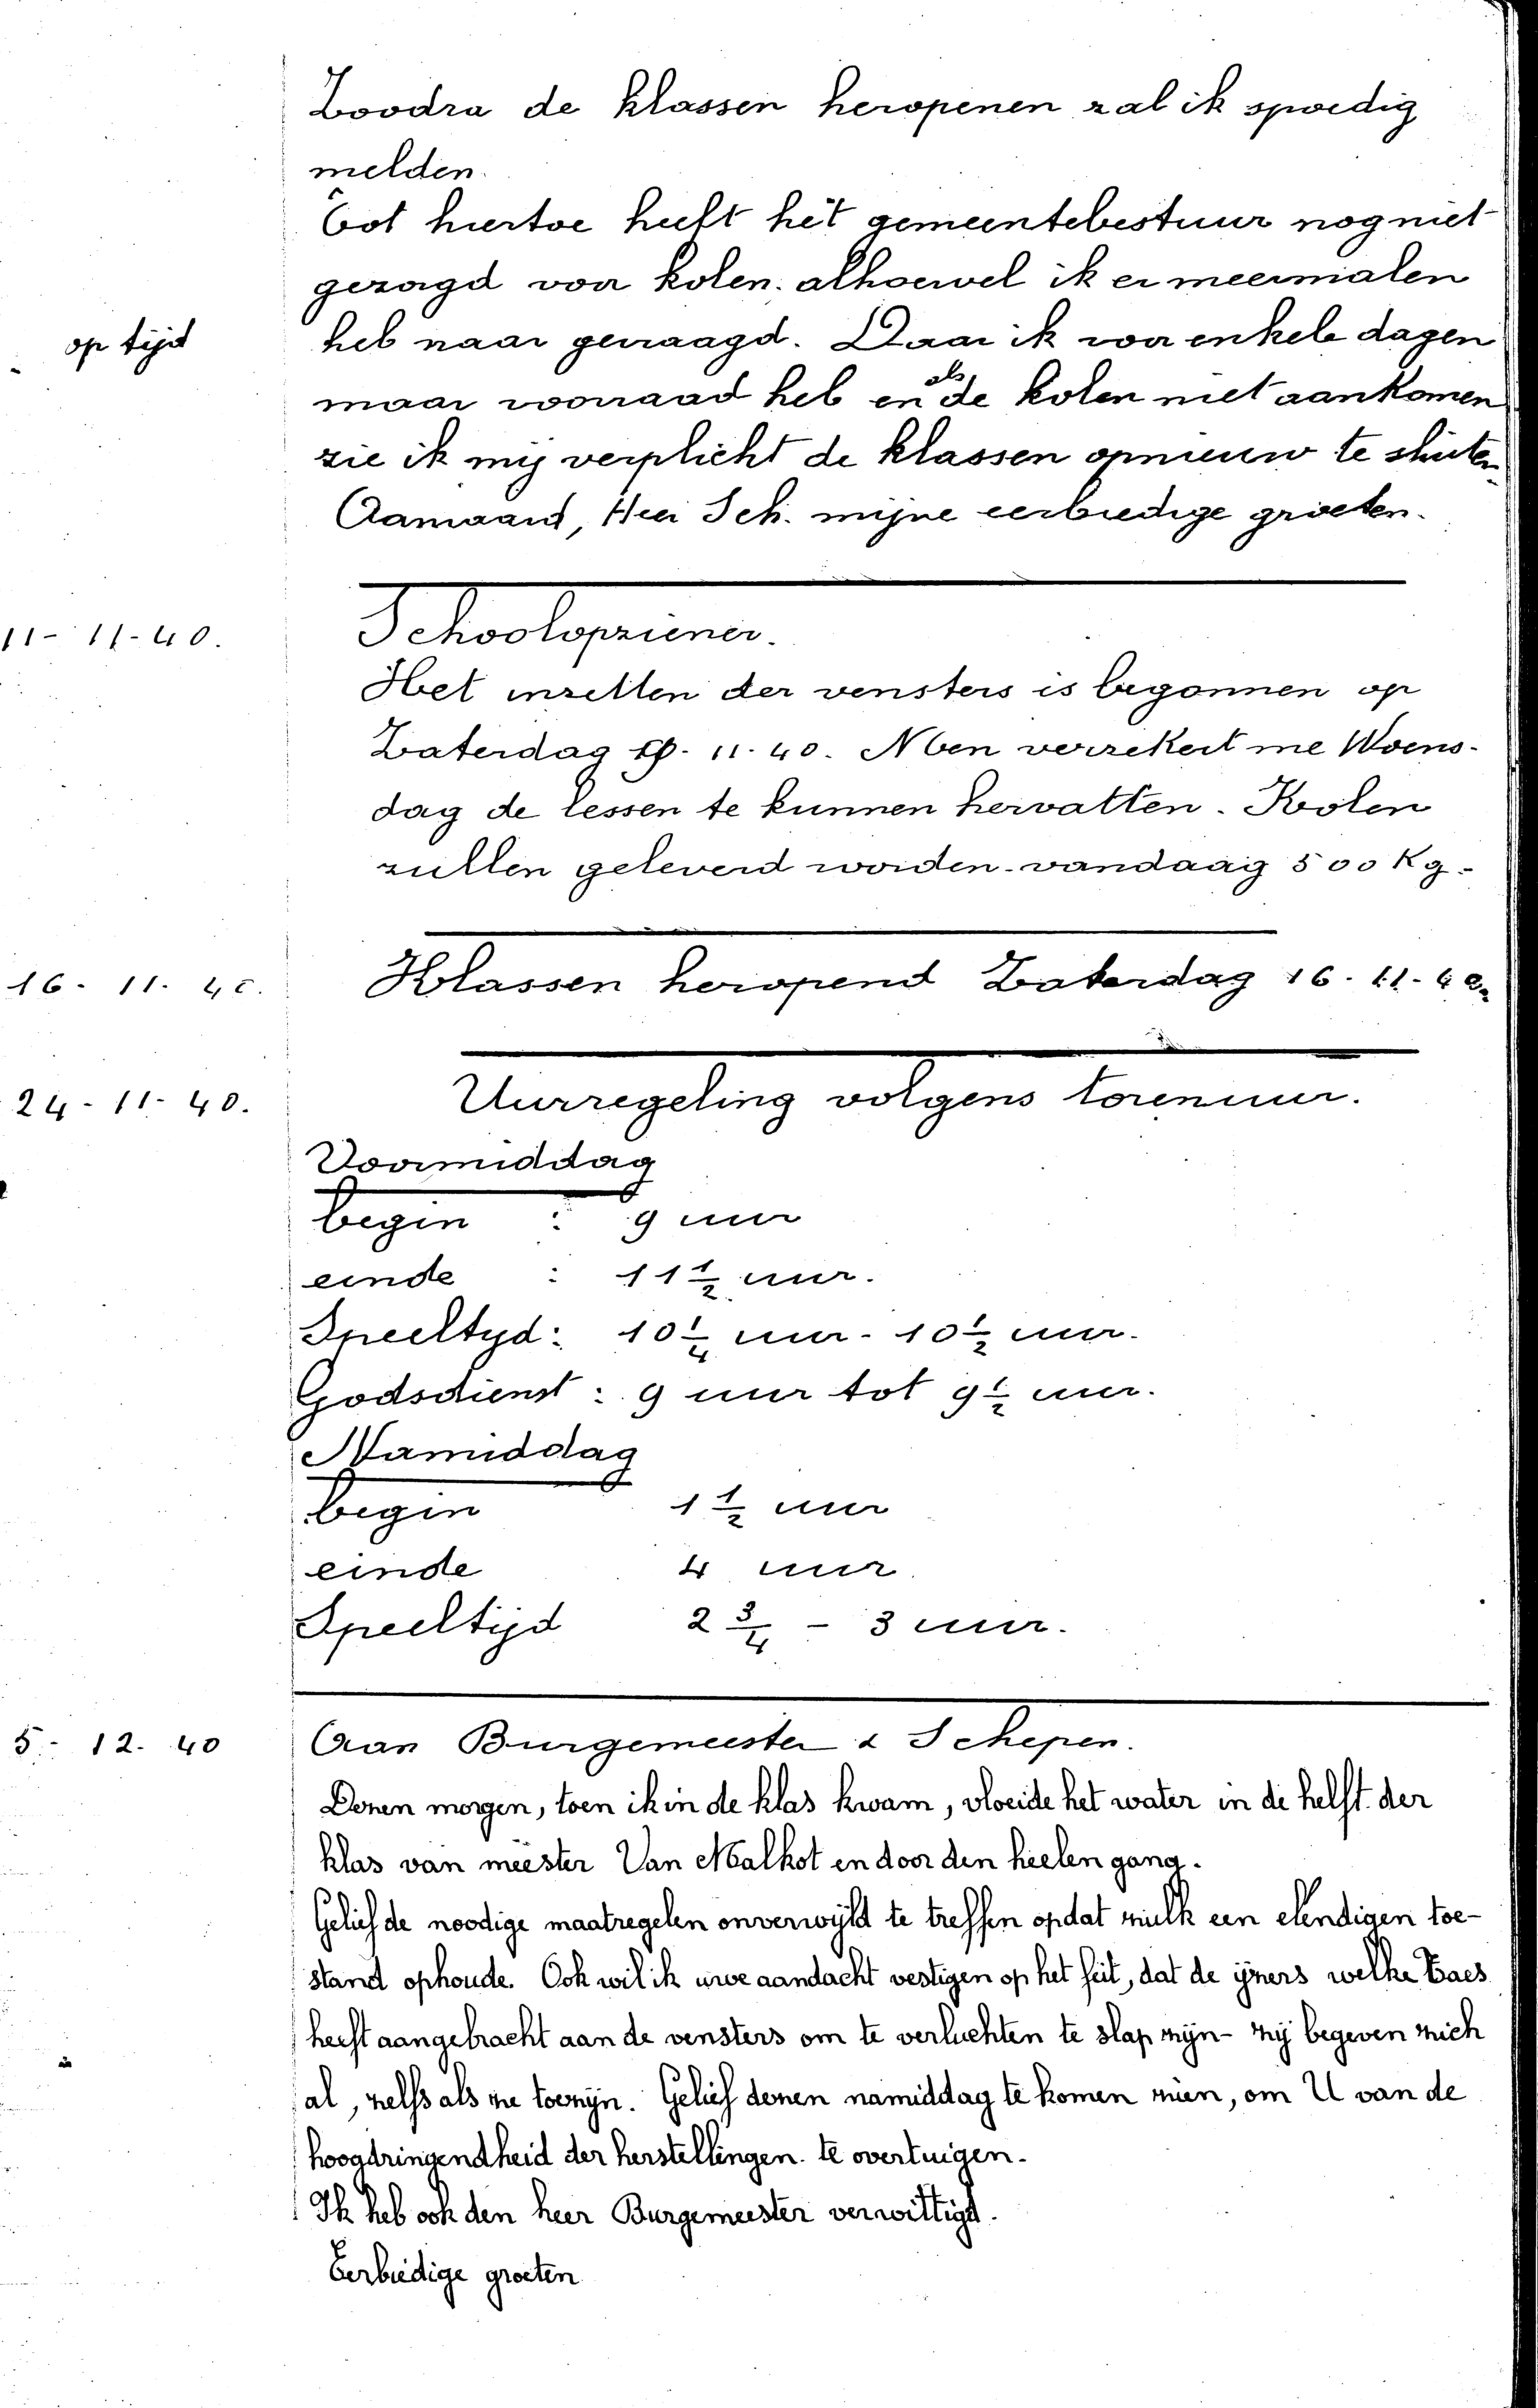 Zoodra de klassen heropenen zal ik spoedig
melden.
Tot hiertoe heeft het gemeentebestuur nog niet
gezorgd voor kolen. alhoewel ik er meermalen
heb naar gevraagd. Daar ik voor enkele dagen
op tijd
maar voorraad heb en als de kolen niet aankomen
zie ik mij verplicht de klassen opnieuw te sluiten
Aanvaard, Heer Sch. mijne eerbiedige groeten.
11-11-40. Schoolopziener.
Het inzetten der vensters is begonnen op
Zaterdag 11. 40. Men verzekert me Woens-
dag de lessen te kunnen hervatten. Kolen
zullen geleverd worden. vandaag 500 Kg.
16. 11. 40. Klassen heropend Zaterdag 16. 11. 40.
24-11-40. Uurregeling volgens torenuur.
Voormiddag
begin : 9 uur
einde : 11 1/2 uur.
Speeltyd: 10 1/4 uur - 10 1/2 uur.
Godsdienst : 9 uur tot 9 1/2 uur.
Namiddag
begin 1 1/2 uur
einde 4 uur.
Speeltijd 2 3/4 - 3 uur.
5-12-40 Aan Burgemeester & Schepen.
Dezen morgen, toen ik in de klas kwam, vloeide het water in de helft der
klas van meester Van Malkot en door den heelen gang.
Gelief de noodige maatregelen onverwijld te treffen opdat zulk een ellendigen toe-
stand ophoude. Ook wil ik uwe aandacht vestigen op het feit, dat de ijzers welke Baes
heeft aangebracht aan de vensters om te verluchten te slap zijn - zij begeven zich
al, zelfs als ze toe zijn. Gelief dezen namiddag te komen zien, om U van de
hoogdringendheid der herstellingen te overtuigen.
Ik heb ook den heer Burgemeester verwittigd.
Eerbiedige groeten